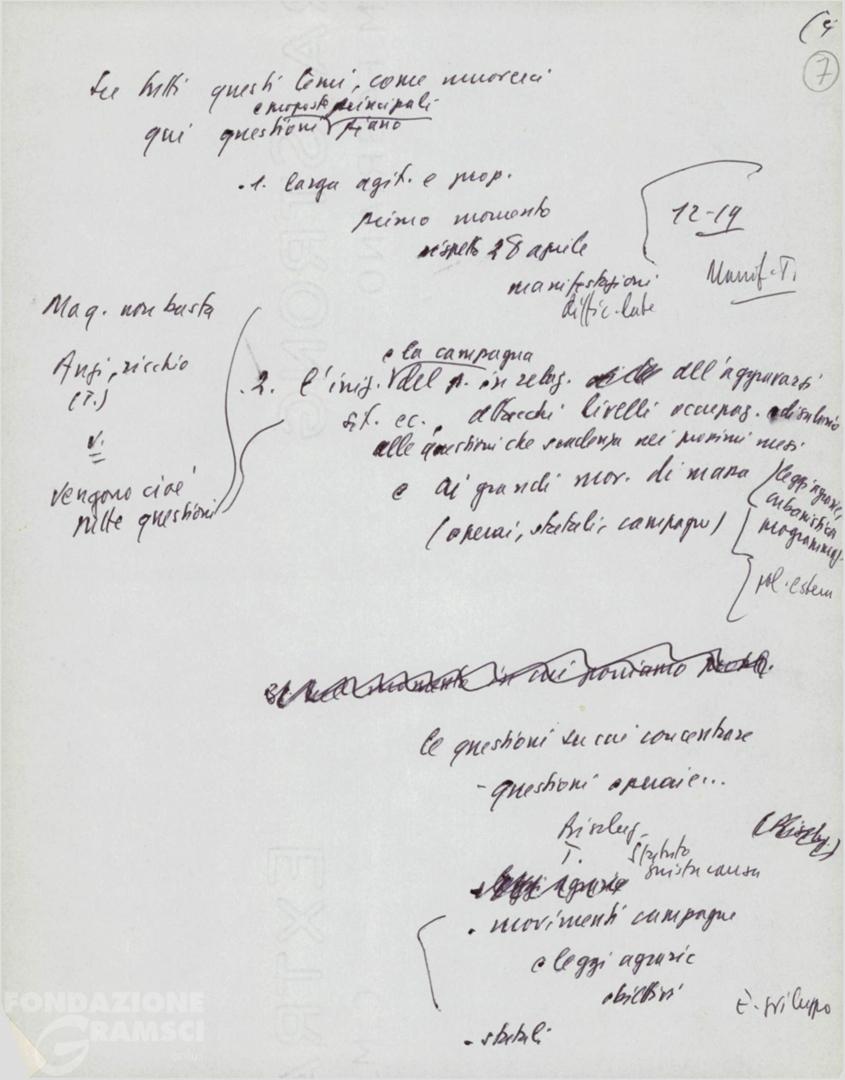 (4
7
su tutti questi temi, come muoverci
e proposte principali
qui questioni piano
.1. larga agit. e prop.
primo momento
rispetto 28 aprile
manifestazioni
12-19
Manif. T.
Mag. non basta
Angi, ricchio
(T.)
v.
vengono cioè
tutte questioni
e la campagna
.2. l'iniz. del p. in relaz. all'aggravarsi
sit. ec., attacchi livelli occupaz.
alle questioni che scadenza nei prossimi mesi
e ai grandi mov. di massa
(operai, statali, campagne)
leggi agrarie,
urbanistica
programmaz.
pol. estera
in cui poniamo
le questioni su cui concentrare
- questioni operaie...
T. Statuto
giusta causa
leggi agrarie
. movimenti campagne
e leggi agrarie
obiettivi
- statali
E. sviluppo
FONDAZIONE
GRAMSCI
onlus
EXTRA
STRONG